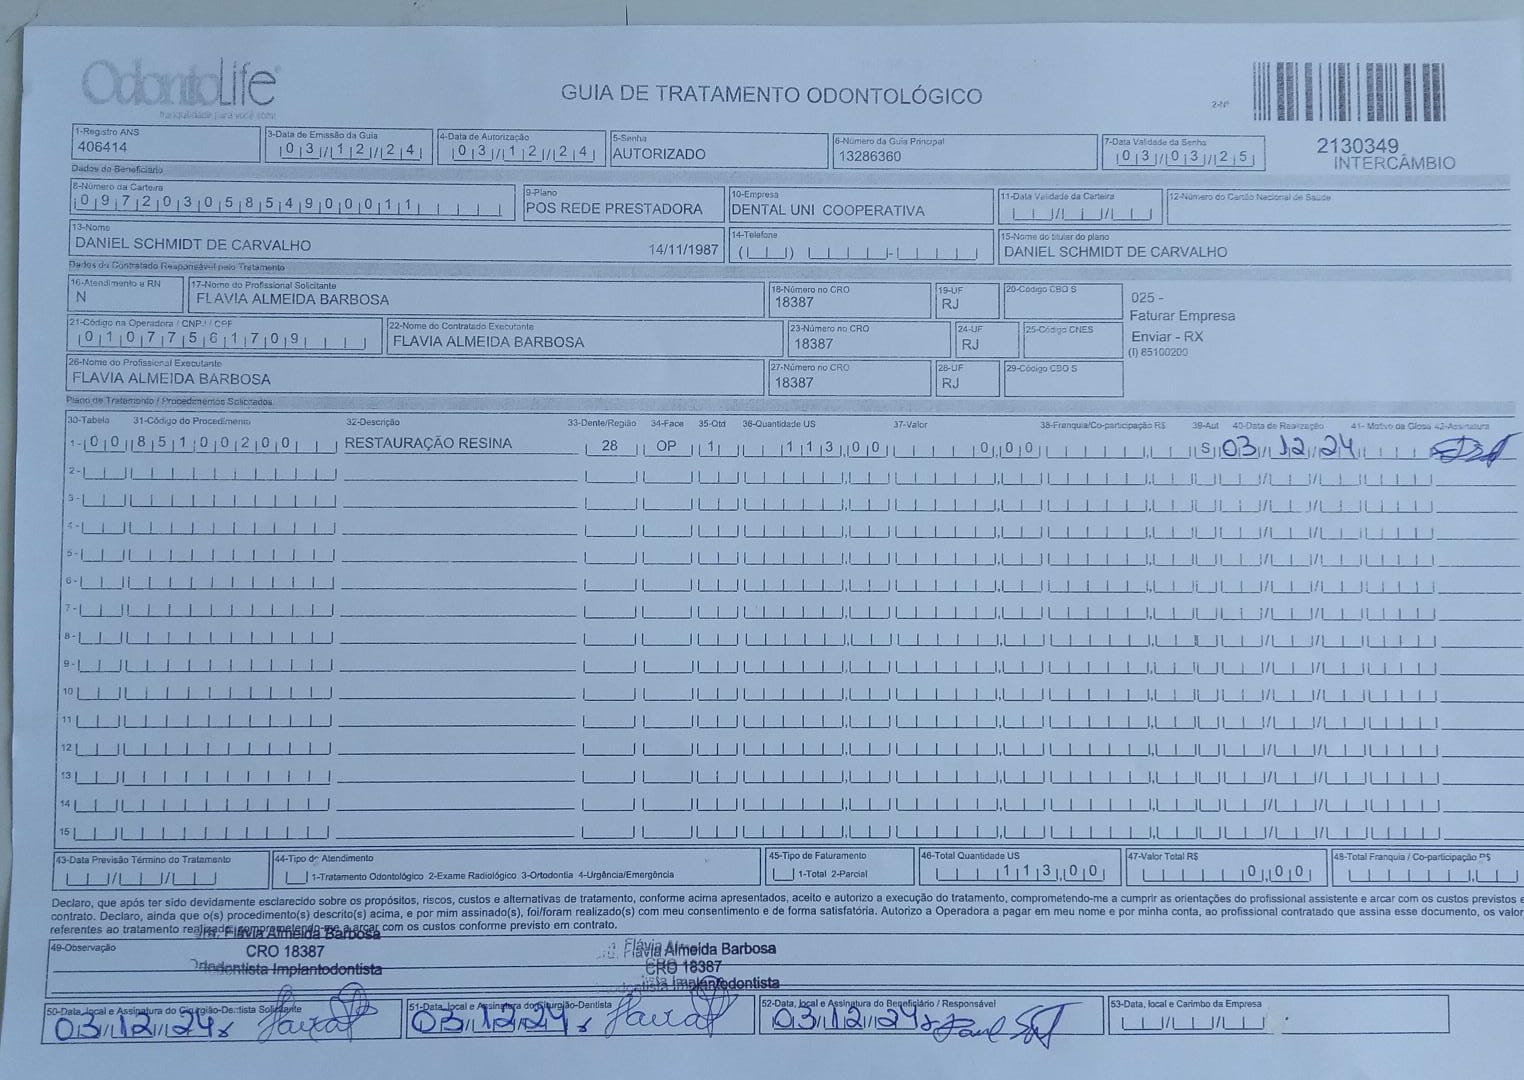 OdontoLife
tranquilidade para você sorrir
GUIA DE TRATAMENTO ODONTOLÓGICO
2-Nº
2130349
INTERCÂMBIO
1-Registro ANS
406414
3-Data de Emissão da Guia
03/12/24
4-Data de Autorização
03/12/24
5-Senha
AUTORIZADO
6-Número da Guia Principal
13286360
7-Data Validade da Senha
03/03/25
Dados do Beneficiário
8-Número da Carteira
09720305854900011
9-Plano
POS REDE PRESTADORA
10-Empresa
DENTAL UNI COOPERATIVA
11-Data Validade da Carteira
12-Número do Cartão Nacional de Saúde
13-Nome
DANIEL SCHMIDT DE CARVALHO 14/11/1987
14-Telefone
15-Nome do titular do plano
DANIEL SCHMIDT DE CARVALHO
Dados do Contratado Responsável pelo Tratamento
16-Atendimento a RN
N
17-Nome do Profissional Solicitante
FLAVIA ALMEIDA BARBOSA
18-Número no CRO
18387
19-UF
RJ
20-Código CBO S
025 -
Faturar Empresa
Enviar - RX
(I) 85100200
21-Código na Operadora / CNPJ / CPF
01077561709
22-Nome do Contratado Executante
FLAVIA ALMEIDA BARBOSA
23-Número no CRO
18387
24-UF
RJ
25-Código CNES
26-Nome do Profissional Executante
FLAVIA ALMEIDA BARBOSA
27-Número no CRO
18387
28-UF
RJ
29-Código CBO S
Plano de Tratamento / Procedimentos Solicitados
30-Tabela 31-Código do Procedimento 32-Descrição 33-Dente/Região 34-Face 35-Qtd 36-Quantidade US 37-Valor 38-Franquia/Co-participação R$ 39-Aut 40-Data de Realização 41- Motivo da Glosa 42-Assinatura
1- 00 85100200 RESTAURAÇÃO RESINA 28 OP 1 113,00 0,00 S 03/12/24
2-
3-
4-
5-
6-
7-
8-
9-
10
11
12
13
14
15
43-Data Previsão Término do Tratamento
44-Tipo de Atendimento
1-Tratamento Odontológico 2-Exame Radiológico 3-Ortodontia 4-Urgência/Emergência
45-Tipo de Faturamento
1-Total 2-Parcial
46-Total Quantidade US
113,00
47-Valor Total R$
0,00
48-Total Franquia / Co-participação R$
Declaro, que após ter sido devidamente esclarecido sobre os propósitos, riscos, custos e alternativas de tratamento, conforme acima apresentados, aceito e autorizo a execução do tratamento, comprometendo-me a cumprir as orientações do profissional assistente e arcar com os custos previstos e
contrato. Declaro, ainda que o(s) procedimento(s) descrito(s) acima, e por mim assinado(s), foi/foram realizado(s) com meu consentimento e de forma satisfatória. Autorizo a Operadora a pagar em meu nome e por minha conta, ao profissional contratado que assina esse documento, os valor
referentes ao tratamento realizado, comprometendo-me a arcar com os custos conforme previsto em contrato.
49-Observação
Flávia Almeida Barbosa
CRO 18387
Ortodontista Implantodontista
Flávia Almeida Barbosa
CRO 18387
Implantodontista
50-Data, local e Assinatura do Cirurgião-Dentista Solicitante
03/12/24
51-Data, local e Assinatura do Cirurgião-Dentista
03/12/24
52-Data, local e Assinatura do Beneficiário / Responsável
03/12/24
53-Data, local e Carimbo da Empresa